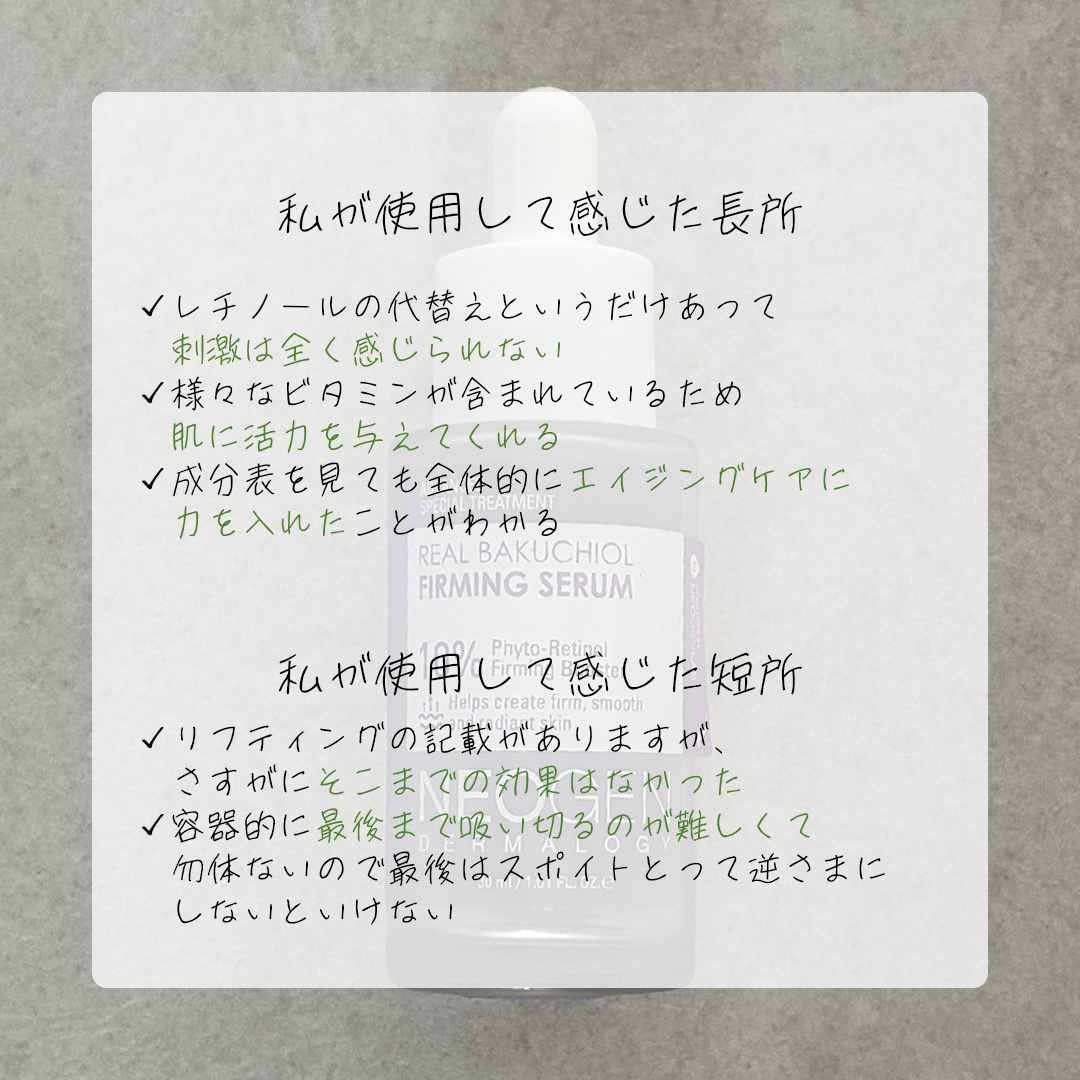 私が使用して感じた長所
✓レチノールの代替えというだけあって
刺激は全く感じられない
✓様々なビタミンが含まれているため
肌に活力を与えてくれる
✓成分表を見ても全体的にエイジングケアに
力を入れたことがわかる
SPECIAL TREATMENT
REAL BAKUCHIOL
FIRMING SERUM
私が使用して感じた短所
Phyto-Retinol
Firming
Helps create firm, smooth
and radiant skin
✓リフティングの記載がありますが、
さすがにそこまでの効果はなかった
NEOGEN
✓容器的に最後まで吸い切るのが難しくて
DERMALOGY
勿体ないので最後はスポイトとって逆さまに
30 ml / 1.01 FL. OZ. ℮
しないといけない